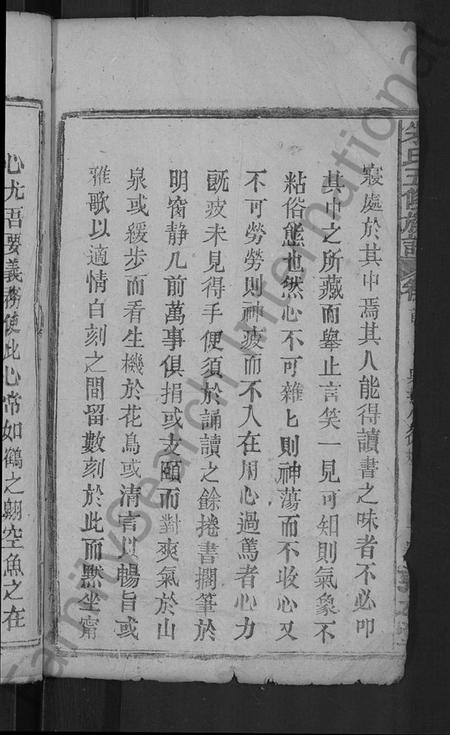 寢處於其中焉其人能得讀書之味者不必叩
其中之所藏而舉止言笑一見可知則氣象不
粘俗態也然心不可雜匕則神蕩而不收心又
不可勞勞則神疲而不入在用心過篤者心力
既疲未見得手便須於誦讀之餘捲書擱筆於
明窗静几前萬事俱捐或支頤而對爽氣於山
泉或緩步而看生機於花鳥或清言以暢旨或
雅歌以適情白刻之間留數刻於此而默坐甯
心尤吾要義務使此心常如鶴之翺空魚之在
FamilySearch International